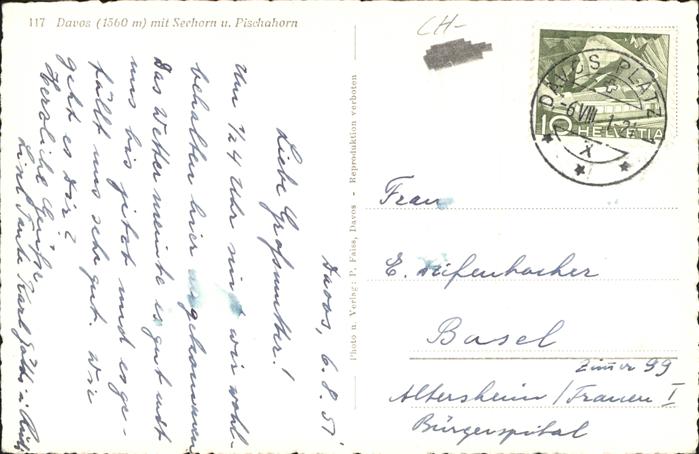 117 Davos (1560 m) mit Seehorn u. Pischahorn
CH-
DAVOS PLATZ
-6.VIII.51.-21
X
10 HELVETIA
Photo u. Verlag: P. Faiss, Davos - Reproduktion verboten
Davos, 6.8.51
Liebe Großmutter!
Um ½4 Uhr sind wir wohl-
behalten hier angekommen
Das Wetter meinte es gut mit
uns bis jetzt und es ge-
fällt uns sehr gut. Wie
geht es Dir?
Herzliche Grüße
Tante Karl
Frau
E. Diefenbacher
Basel
Zimmer 99
Altersheim/Frauen I
Bürgerspital